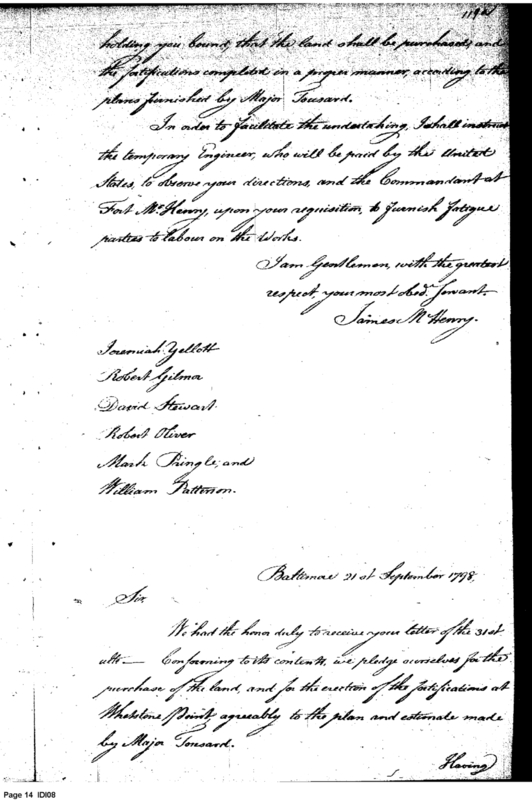 119
holding you bound, that the land shall be purchased, and
the fortifications completed in a proper manner, acording to the
plans furnished by Major Tousard.
In order to facilitate the undertaking, I shall instruct
the temporary Engineer, who will be paid by the United
States, to observe your directions, and the Commandant at
Fort McHenry, upon your requisition, to furnish fatigue
parties to labour on the Works.
I am Gentlemen, with the greatest
respect, your most obedt. Servant.
James McHenry.
Jeremiah Yellott
Robert Gilmor
David Stewart
Robert Oliver
Mark Pringle, and
William Patterson.
Baltimore 21st September 1798.
Sir,
We had the honor duly to receive your letter of the 31st
ulto— Conforming to its contents, we pledge ourselves for the
purchase of the land, and for the erection of the fortifications at
Whetstone Point agreeably to the plan and estimate made
by Major Tousard.
Having
Page 14 IDI08